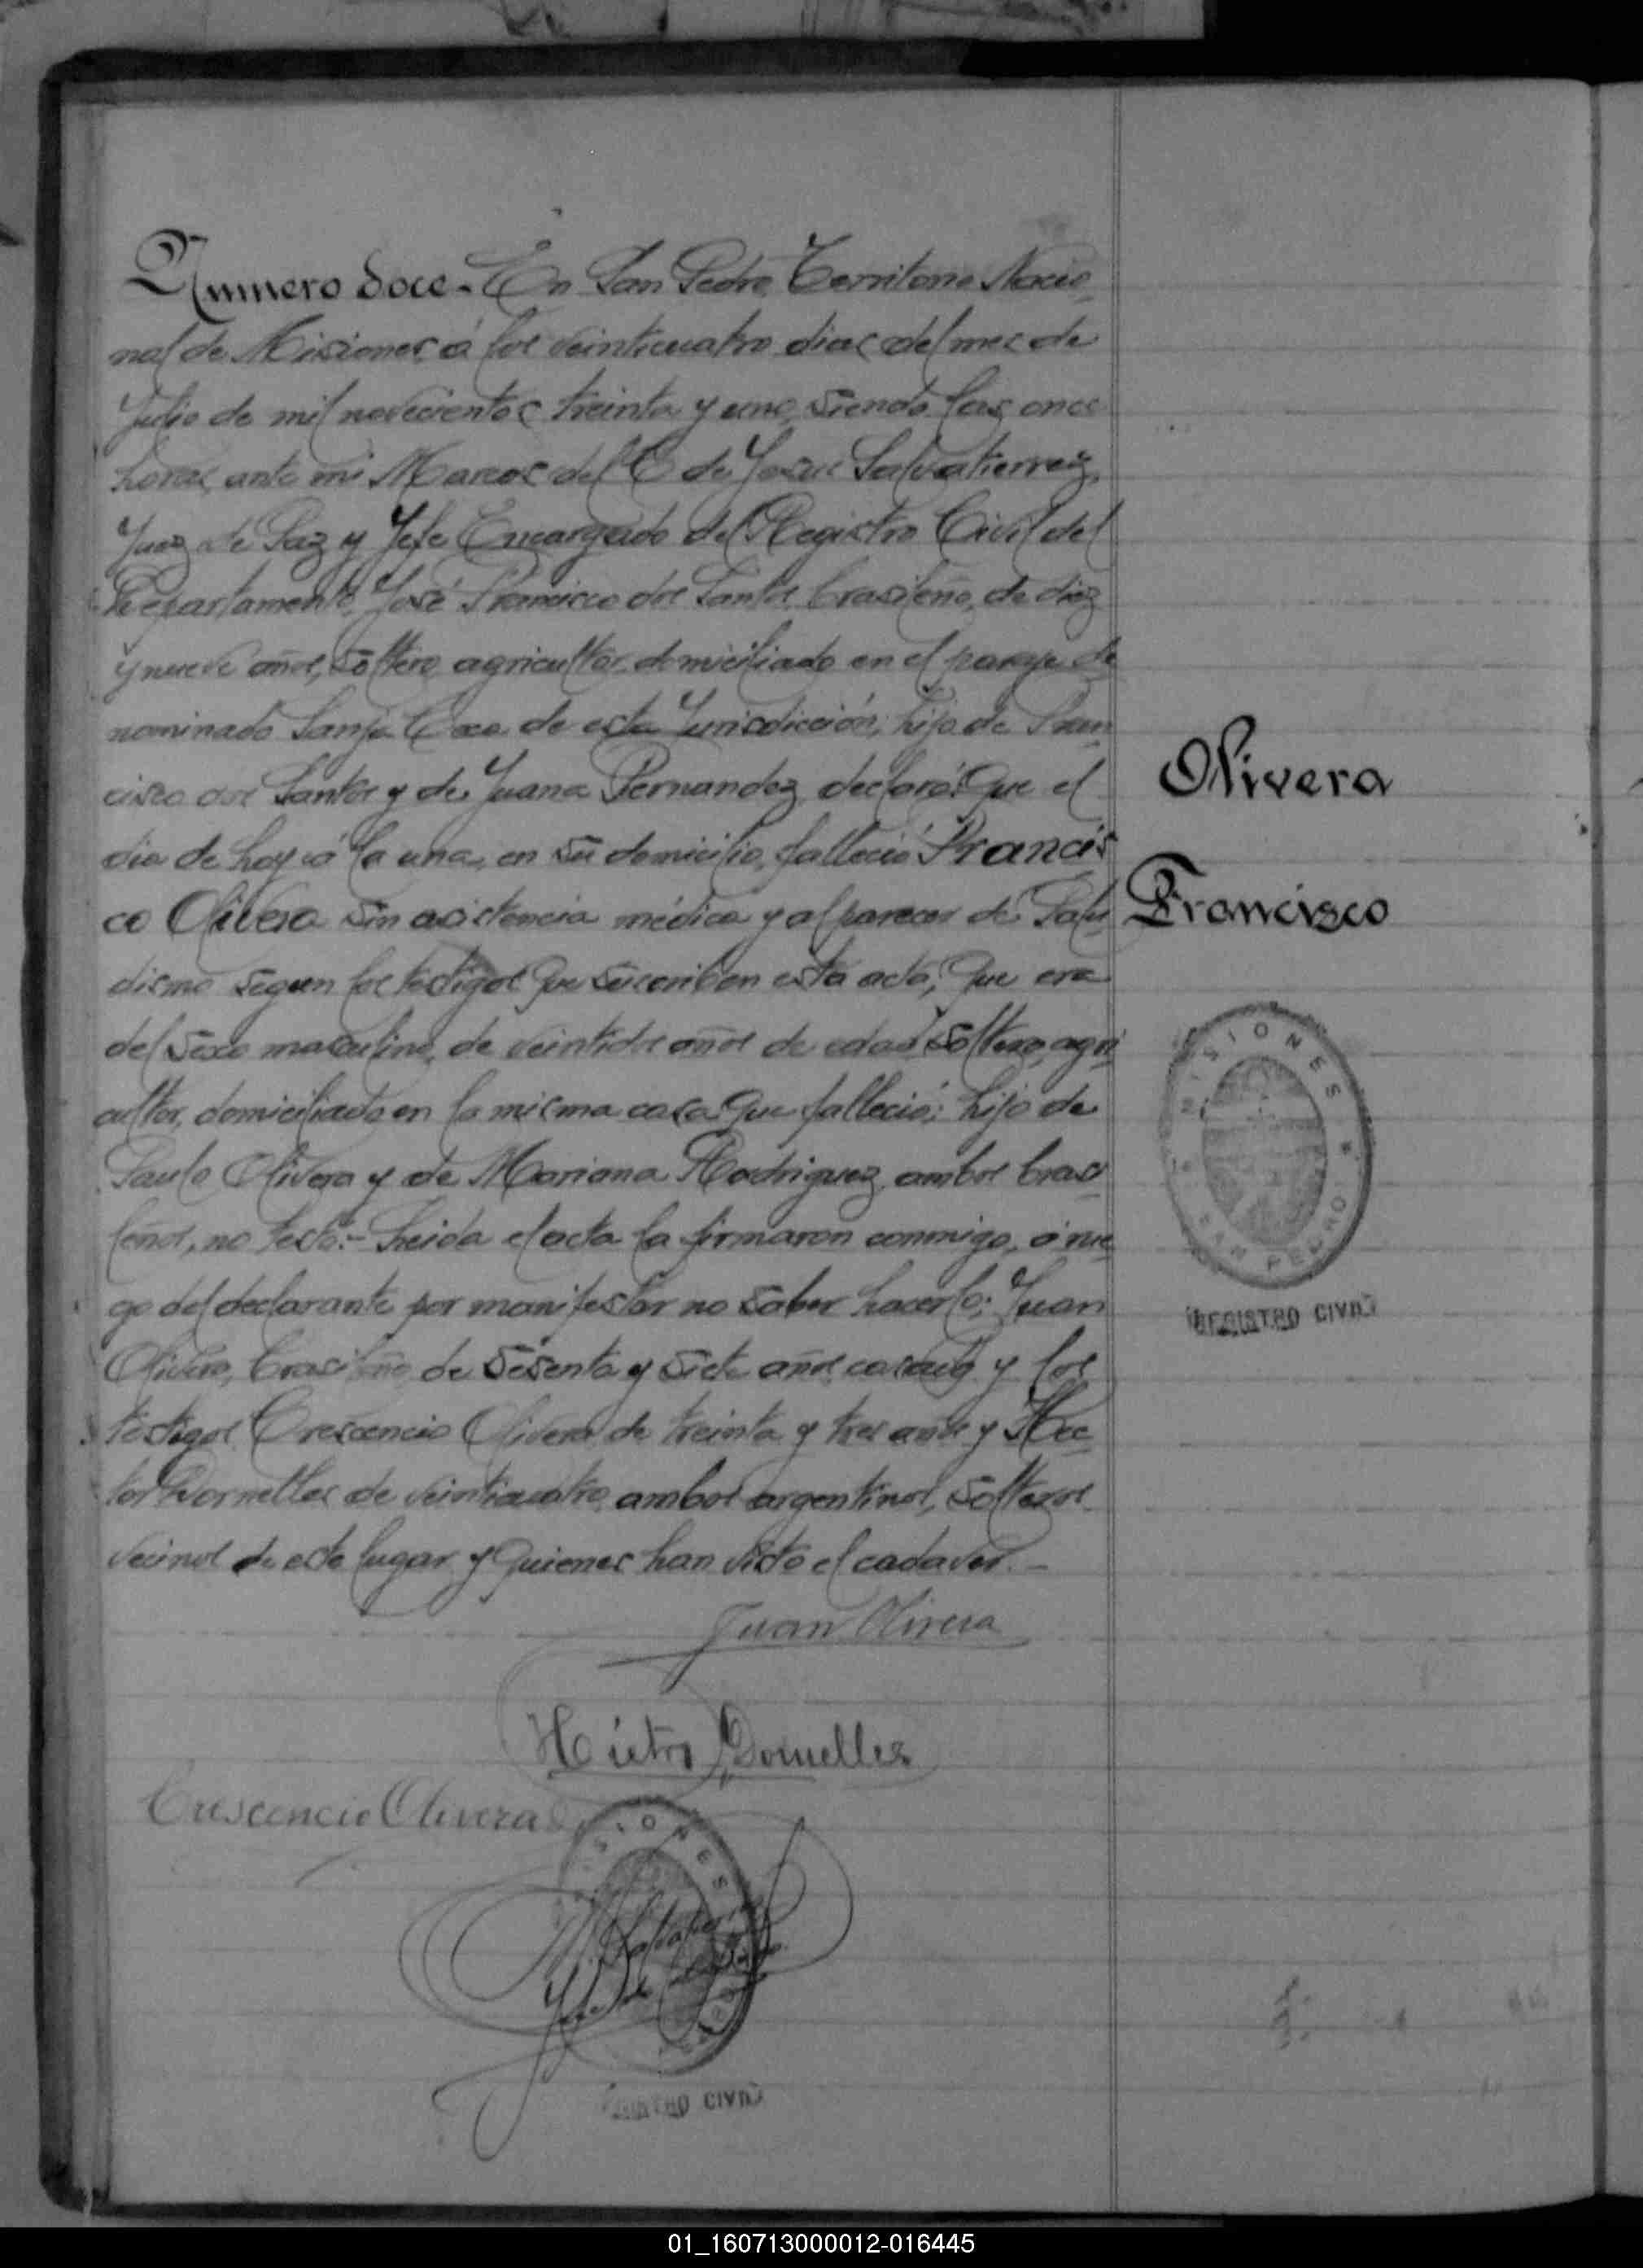 Numero doce.- En San Pedro, Territorio Nacio
nal de Misiones á los veinticuatro dias del mes de
Julio de mil novecientos treinta y uno, siendo las once
horas, ante mi Marcos del C de Jesus Salvatierra,
Juez de Paz y Jefe Encargado del Registro Civil del
Departamento, José Francisco dos Santos, brasileño, de diez
y nueve años, soltero, agricultor, domiciliado en el paraje de
nominado de esta Jurisdicción; hijo de Fran
cisco dos Santos y de Juana Fernandez, declaró: Que el
dia de hoy á la una, en su domicilio, falleció Francis
co Olivera sin asistencia médica y al parecer de Palu
dismo segun los testigos que suscriben esta acta; Que era
del sexo masculino, de veintidos años de edad, soltero, agri
cultor, domiciliado en la misma casa que falleció; hijo de
Paulo Olivera y de Mariana Rodriguez, ambos brasi
leños, no testó:- Leida el acta la firmaron conmigo, á rue
go del declarante por manifestar no saber hacerlo; Juan
Olivera, brasileño, de sesenta y siete años, casado y los
testigos Crescencio Olivera de treinta y tres años y Hec
tor Dornelles de veinticuatro, ambos argentinos, solteros
vecinos de este lugar y quienes han visto el cadaver.-
Olivera
Francisco
MISIONES
SAN PEDRO
REGISTRO CIVIL
Juan Olivera
Dornelles
Crescencio Olivera
M. Salvatierra
REGISTRO CIVIL
01_160713000012-016445